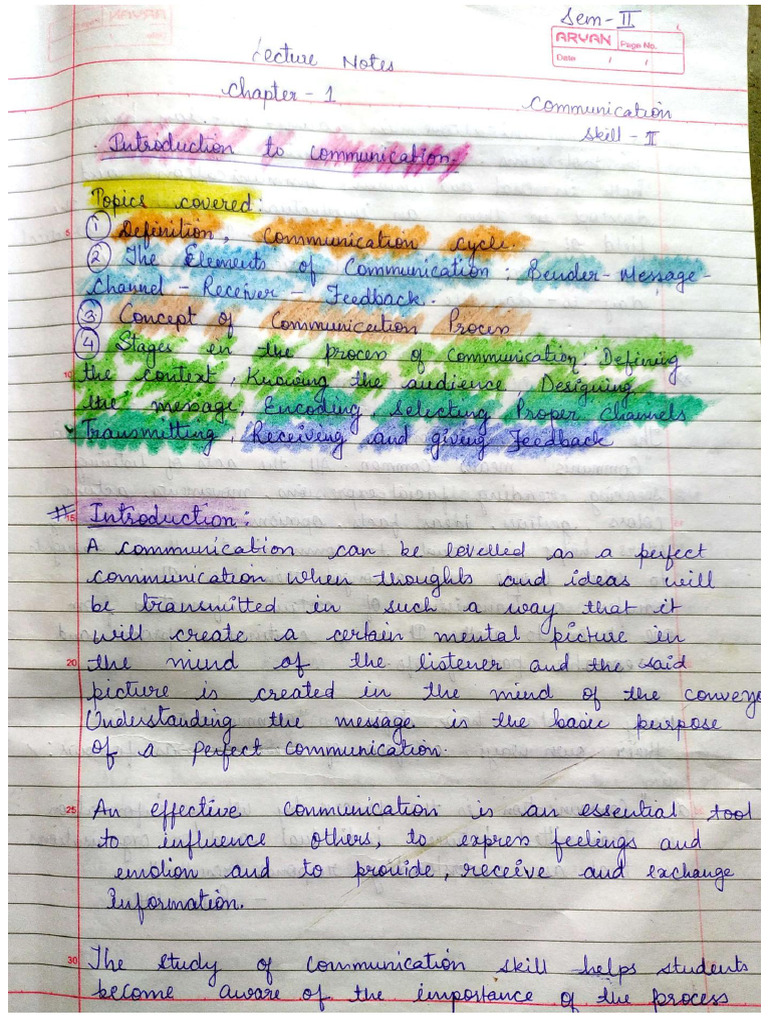 Sem-II
ARYAN Page No.
Date / /
Lecture Notes
Chapter-1
Communication
Skill-II
Introduction to communication.
Topics covered:
① Definition, Communication cycle.
② The Elements of Communication: Sender-Message-
Channel-Receiver-Feedback.
③ Concept of Communication Process
④ Stages in the process of communication: Defining
10 the context, Knowing the audience, Designing
the message, Encoding, Selecting Proper Channels
Transmitting, Receiving and giving Feedback
# 15 Introduction:
A communication can be levelled as a perfect
communication when thoughts and ideas will
be transmitted in such a way that it
will create a certain mental picture in
20 the mind of the listener and the said
picture is created in the mind of the conveye
Understanding the message is the basic purpose
of a perfect communication.
25 An effective communication is an essential tool
to influence others, to express feelings and
emotion and to provide, receive and exchange
Information.
30 The study of communication skill helps students
become aware of the importance of the process